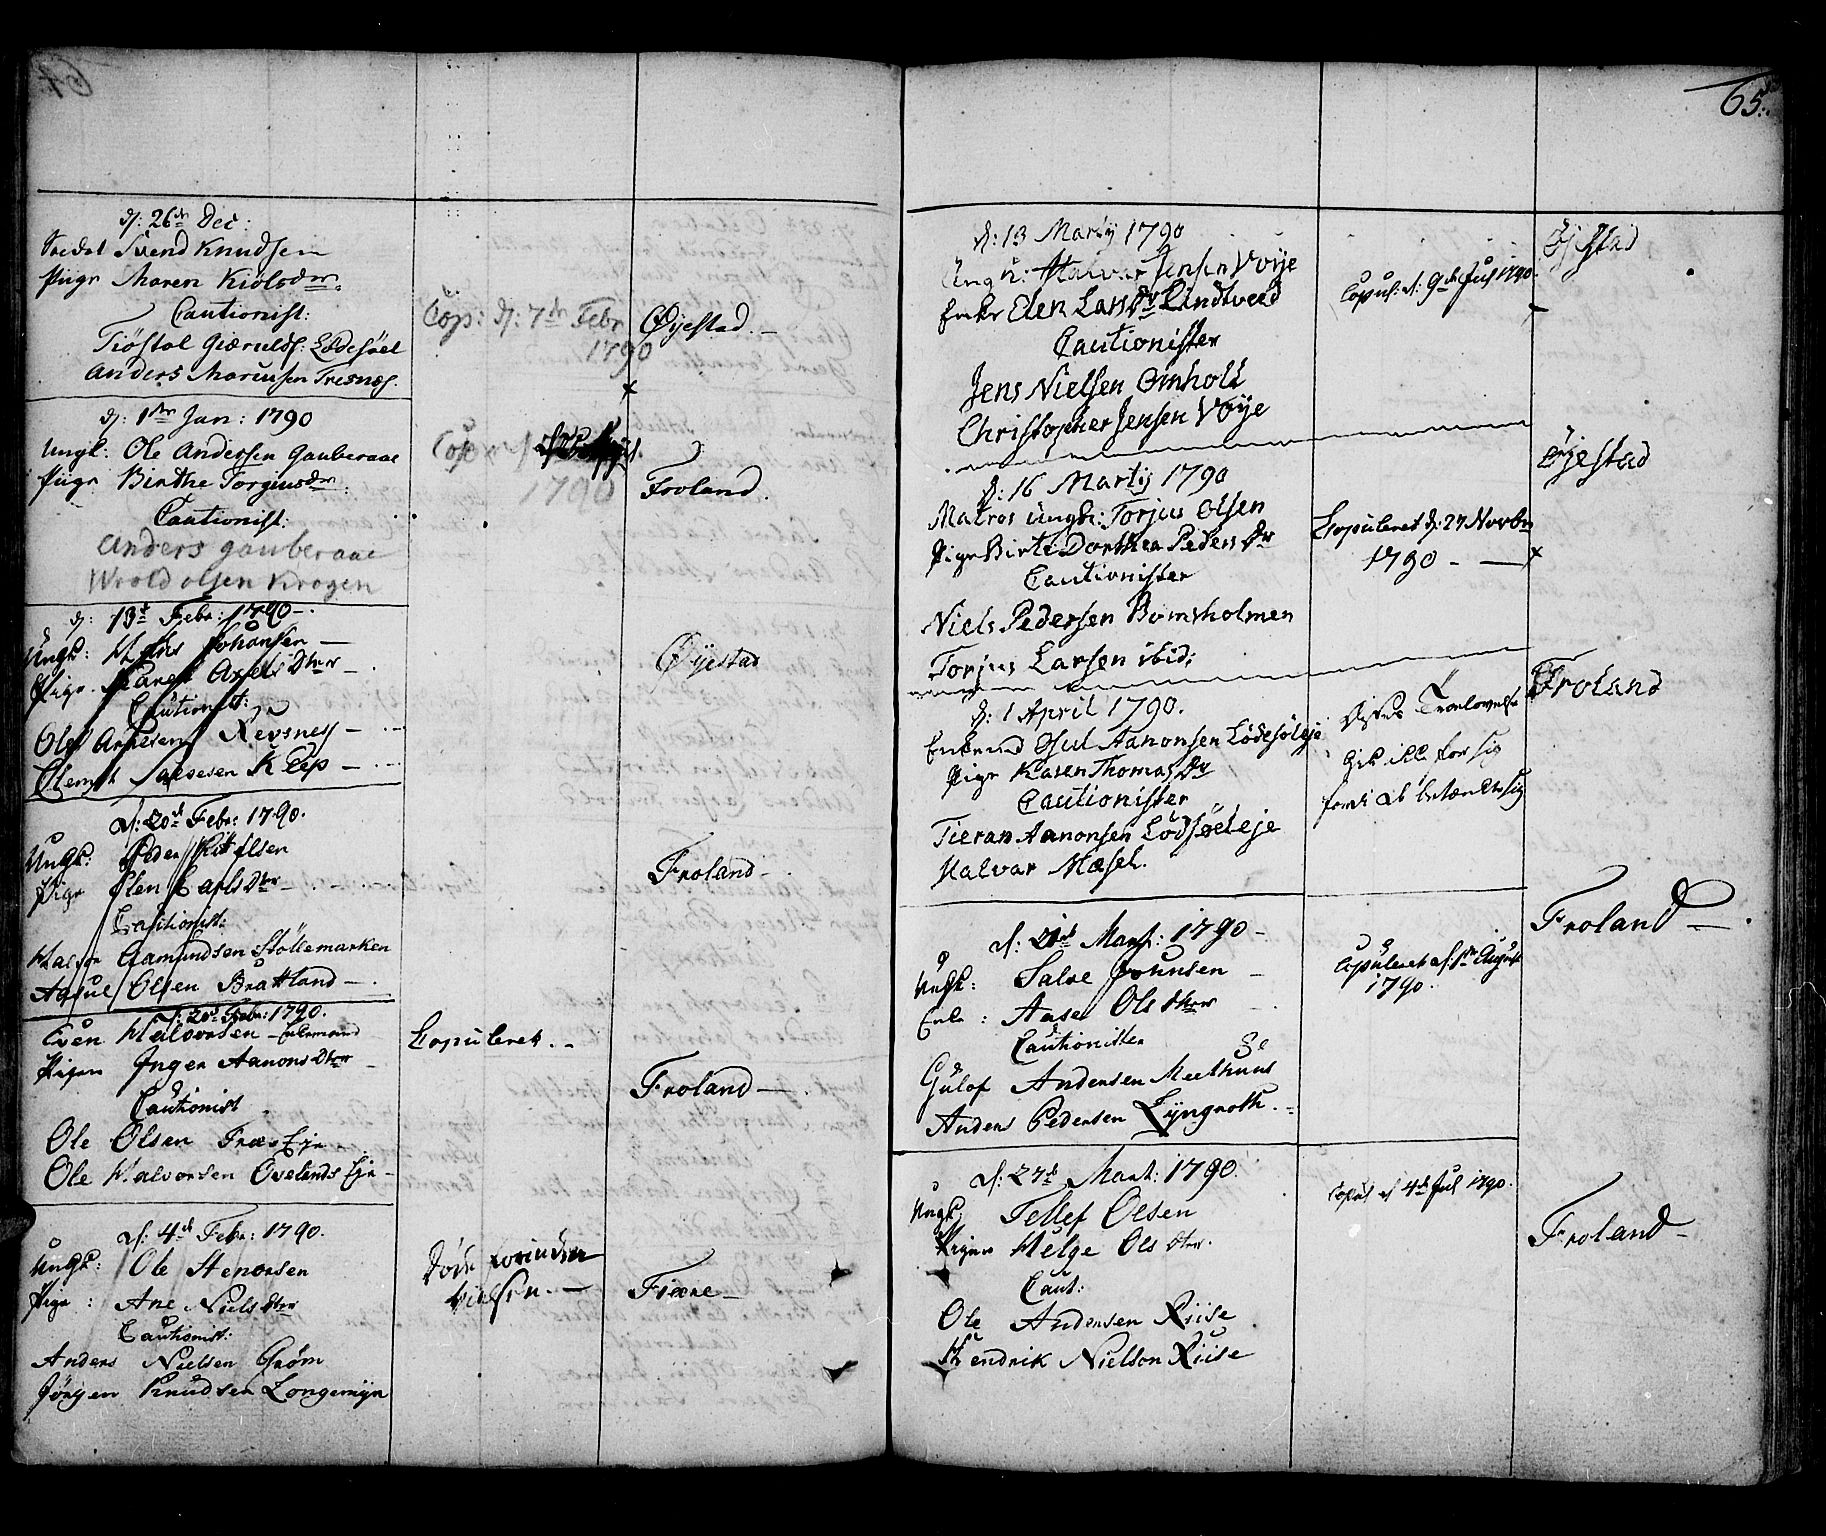 64
d: 26de Dec:
Soldat Svend Knudsen
Pige Maren Kiolsdtr.
Cautionist:
Tiøstol Giærulds: Lødesøel
Anders Mariusen Fresnæs.
Cop: d: 7de Febr
1790
Øyestad. —
d: 1ste Jan: 1790
Ungk: Ole Andersen Gauberaae
Pige Birthe Torgiusdtr:
Cautionist:
Anders gauberaae
Wrold olsen Krogen
Cop
1790
Froland.
d: 13de Febr: 1790 —.
Ungk: Johansen —
Pige Maren Axels Dtter —.
Cautionist:
Ole Nævsnes —
Klep —
Øyestad
d: 20de Febr: 1790.
Ungk: Peder Kittelsen
Pige Elen Carls Dtter
Cautionist:
Halvor Gamundsen Støllemarken
Aasul Olsen Brattland —.
Froland —
d: 20de Febr: 1790.
Even Halvorsen — Enkemand
Pigen Inger Aanons Dtter
Cautionist
Ole Olsen Træe Eje
Ole Halvorsen Øvelands Eje —
Copuleret. —
Froland —.
d: 4de Febr: 1790.
Ungk: Ole Stenersen
Pige : Ane Niels dtter
Cautionist:
Anders Nielsen Grøm
Jörgen Knudsen Longemyr
Døde forinden
vielsen. —
Fiære —
65.
d: 13 Martij 1790
Ungk: Halvor Jensen Voije
Enke Elen Lars Dr Lindtveed
Cautionister
Jens Nielsen Omholt
Christopher Jensen Voije
Copul: d: 9de Jul 1790.
Øjestad
d: 16 Martij 1790
Matros Ungk: Torjus Olsen
Pige Birte Dorthea Peders Dr
Cautionister
Niels Pedersen Bomsholmen
Torjus Larsen ibid;
Copuleret d: 27 Novbr
1790 — —
Øjestad
d: 1 April 1790.
Enkemd Osul Aanonsen Lødesøleje
Pige Karen Thomas Dr
Cautionister
Tieran Aanonsen Lødsøeleje
Halvar Mæsel.
Disses Troelovelse
gik ikke for sig
fordi de betænkte sig
Froland
d: 21de Mart: 1790 —
Ungk: Salve Johnsen —
Enke : Aase Ols dtter
Cautionister
Gulof Andersen Meethuus
Anders Pedersen Lyngroth. —
Copuleret d: 1ste August
1790.
Froland —
d: 27de Mart: 1790.
Ungk: Tellef Olsen
Pigen Helge Ols dtter.
Caut:
Ole Andersen Riise
Hendrik Nielson Riise
Copul d 4de Jul 1790.
Froland —